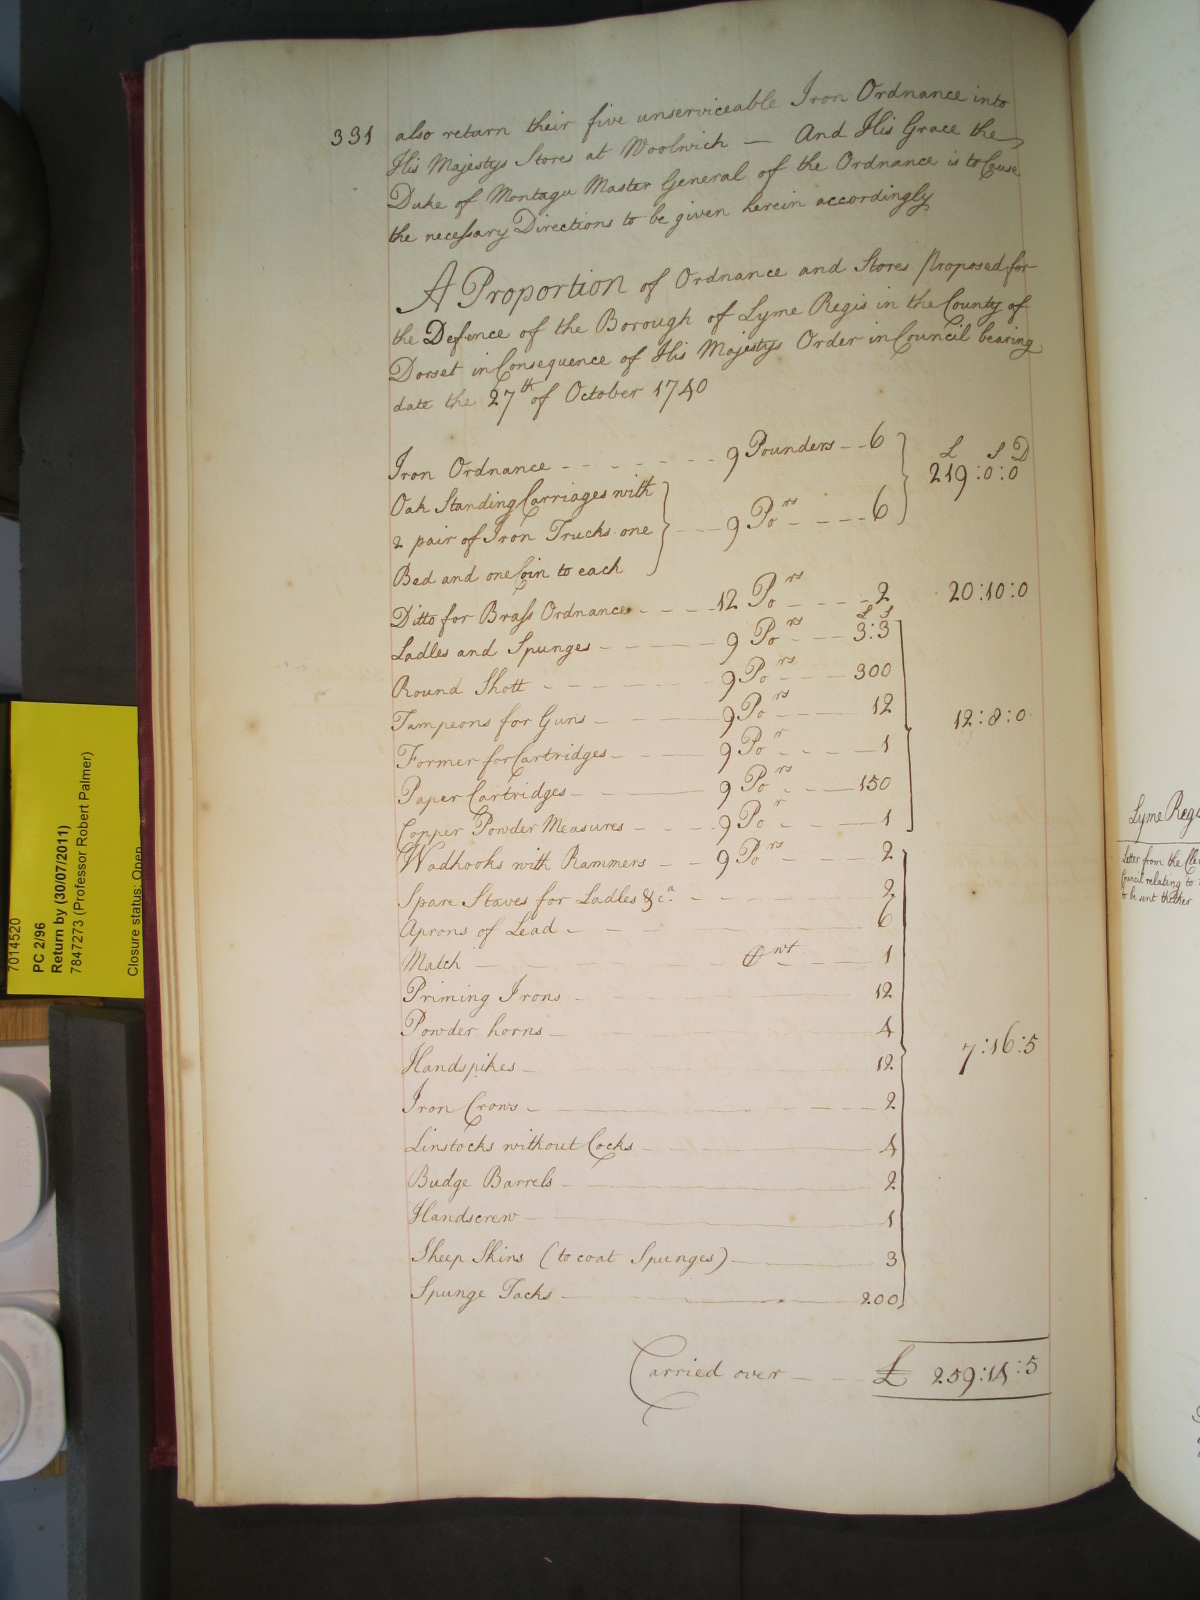 331 also return their five unserviceable Iron Ordnance into
His Majestys Stores at Woolwich — And His Grace the
Duke of Montagu Master General of the Ordnance is to Cause
the necessary Directions to be given herein accordingly
A Proportion of Ordnance and Stores Proposed for
the Defence of the Borough of Lyme Regis in the County of
Dorset in Consequence of His Majestys Order in Council bearing
date the 27th of October 1740
£ S D
Iron Ordnance - - - - - 9 Pounders - - 6 219:0:0
Oak Standing Carriages with
2 pair of Iron Trucks one - - - 9 Pors - - - 6
Bed and one Coin to each
Ditto for Brass Ordnance - - - 12 Pors - - - 2 20:10:0
£ s
Ladles and Spunges - - - 9 Pors - - - 3:3
Round Shott - - - 9 Pors - - - 300
Tampeons for Guns - - - 9 Pors - - - 12 12:8:0
Former for Cartridges - - - 9 Por - - - 1
Paper Cartridges - - - 9 Pors - - - 150
Copper Powder Measures - - - 9 Por - - - 1
Wadhooks with Rammers - - 9 Pors - - - 2
Spare Staves for Ladles &ca. - - - 2
Aprons of Lead - - - 6
Match - - - Cwt - - - 1
Priming Irons - - - 12
Powder horns - - - 4
Handspikes - - - 12 7:16:5
Iron Crows - - - 2
Linstocks without Cocks - - - 4
Budge Barrels - - - 2
Handscrew - - - 1
Sheep Skins (to coat Spunges) - - - 3
Spunge Tacks - - - 200
Carried over - - - £ 259:14:5
7014520
PC 2/96
Return by (30/07/2011)
7847273 (Professor Robert Palmer)
Closure status: Open
Lyme Regis
Letter from the
Council relating to
to be sent thither